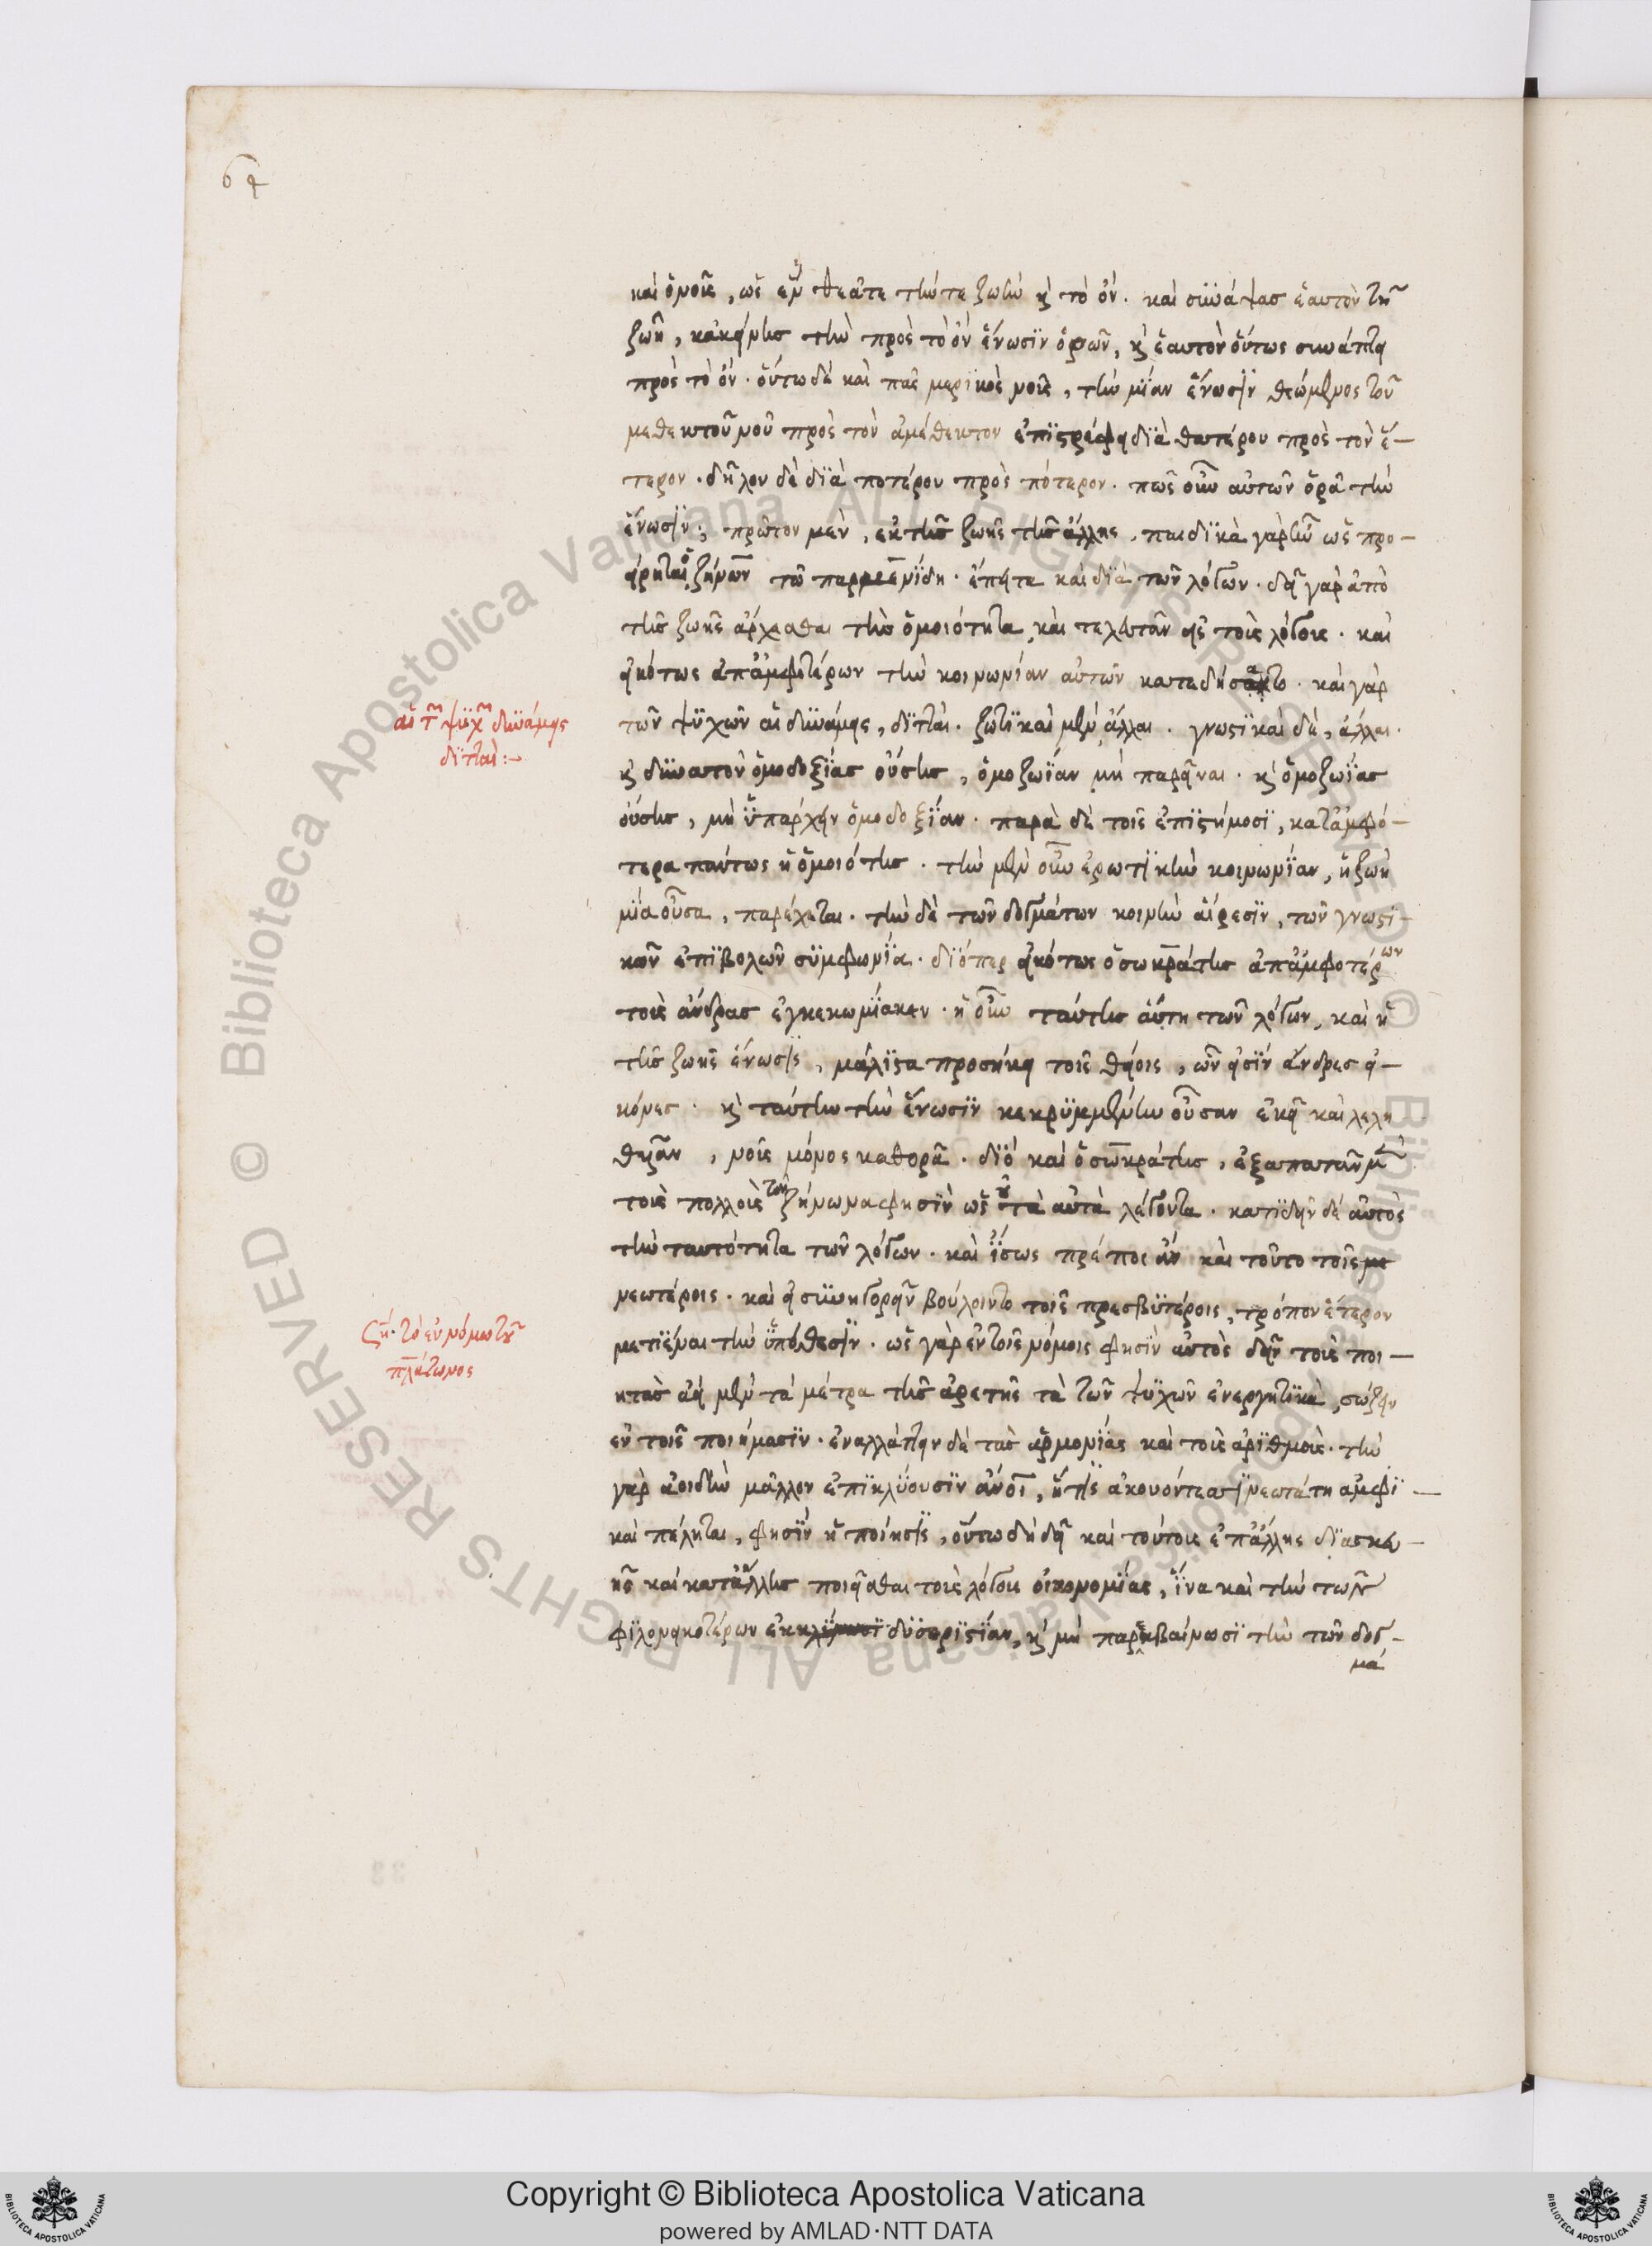 64
καὶ ὁ νοῦς, ὡς ἓν θεᾶται τήν τε ζωὴν καὶ τὸ ὄν. καὶ συνάψας ἑαυτὸν τῇ
ζωῇ, κἀκείνης τὴν πρὸς τὸ ὂν ἕνωσιν ὁρῶν, καὶ ἑαυτὸν οὕτως συνάπτει
πρὸς τὸ ὄν. οὕτω δὲ καὶ πᾶς μερικὸς νοῦς, τὴν μίαν ἕνωσιν θεώμενος τοῦ
μεθεκτοῦ νοῦ πρὸς τὸν ἀμέθεκτον ἐπιστρέφει διὰ θατέρου πρὸς τὸν ἕ-
τερον. δῆλον δὲ διὰ ποτέρου πρὸς πότερον. πῶς οὖν αὐτῶν ὁρᾷ τὴν
ἕνωσιν; πρῶτον μὲν, ἐκ τῆς ζωῆς τῆς ἄλλης, παιδικὰ γὰρ ἦν ὡς προ-
είρηται ὁ ζήνων τῷ παρμενίδῃ. ἔπειτα καὶ διὰ τῶν λόγων. δεῖ γὰρ ἀπὸ
τῆς ζωῆς ἄρχεσθαι τὴν ὁμοιότητα, καὶ τελευτᾶν εἰς τοὺς λόγους. καὶ
εἰκότως ἀπ' ἀμφοτέρων τὴν κοινωνίαν αὐτῶν κατεδήσατο. καὶ γὰρ
τῶν ψυχῶν αἱ δυνάμεις, διτταί. ζωτικαὶ μὲν ἄλλαι. γνωστικαὶ δὲ, ἄλλαι.
καὶ δυνατὸν ὁμοδοξίας οὔσης, ὁμοζωΐαν μὴ παρεῖναι. καὶ ὁμοζωΐας
οὔσης, μὴ ὑπάρχειν ὁμοδοξίαν. παρὰ δὲ τοῖς ἐπιστήμοσι, κατ' ἀμφό-
τερα πάντως ἡ ὁμοιότης. τὴν μὲν οὖν ἐρωτικὴν κοινωνίαν, ἡ ζωὴ
μία οὖσα, παρέχεται. τὴν δὲ τῶν δογμάτων κοινὴν αἵρεσιν, τῶν γνωστι-
κῶν ἐπιβολῶν συμφωνία. διόπερ εἰκότως ὁ σωκράτης ἀπ' ἀμφοτέρων
τοὺς ἄνδρας ἐγκεκωμίακεν. ἡ οὖν ταύτης αὕτη τῶν λόγων, καὶ ἡ
τῆς ζωῆς ἕνωσις, μάλιστα προσήκει τοῖς θείοις, ὧν εἰσιν ἄνδρες εἰ-
κόνες. καὶ ταύτην τὴν ἕνωσιν κεκρυμμένην οὖσαν ἐκεῖ καὶ λελη
θυῖαν, νοῦς μόνος καθορᾷ. διὸ καὶ ὁ σωκράτης, ἐξαπατᾶν μὲν
τοὺς πολλοὺς τὸν ζήνωνα φησὶν ὡς οὐ τὰ αὐτὰ λέγοντα. κατιδεῖν δὲ αὐτὸς
τὴν ταυτότητα τῶν λόγων. καὶ ἴσως πρέποι ἂν καὶ τοῦτο τοῖς
νεωτέροις. καὶ εἰ συνηγορεῖν βούλοιντο τοῖς πρεσβυτέροις, τρόπον ἕτερον
μετιέναι τὴν ὑπόθεσιν. ὡς γὰρ ἐν τοῖς νόμοις φησὶν αὐτὸς δεῖν τοὺς ποι-
ητὰς ἀεὶ μὲν τὰ μέτρα τῆς ἀρετῆς τὰ τῶν ψυχῶν ἐνεργητικὰ, σώζειν
ἐν τοῖς ποιήμασιν. ἐναλλάττειν δὲ τὰς ἁρμονίας καὶ τοὺς ἀριθμοὺς. τὴν
γὰρ ἀοιδὴν μᾶλλον ἐπικλύουσιν ἄνοι, ἥτις ἀκουόντεσσι νεωτάτη ἀμφι-
καὶ πέληται, φησὶν ἡ ποίησις, οὕτω δὴ δεῖ καὶ τούτοις ἐπ' ἄλλης διασκευ-
ῆς καὶ κατ' ἄλλης ποιεῖσθαι τοὺς λόγους οἰκονομίας, ἵνα καὶ τὴν τῶν
φιλονεικοτέρων ἐκκλίνωσι δυσεριστίαν, καὶ μὴ παρεκβαίνωσι τὴν τῶν δογ-
μά
αἱ τῶν ψυχῶν δυνάμεις
διτταί:-
ση. τὸ ἐν νόμω τοῦ
πλάτωνος
Copyright © Biblioteca Apostolica Vaticana
powered by AMLAD·NTT DATA